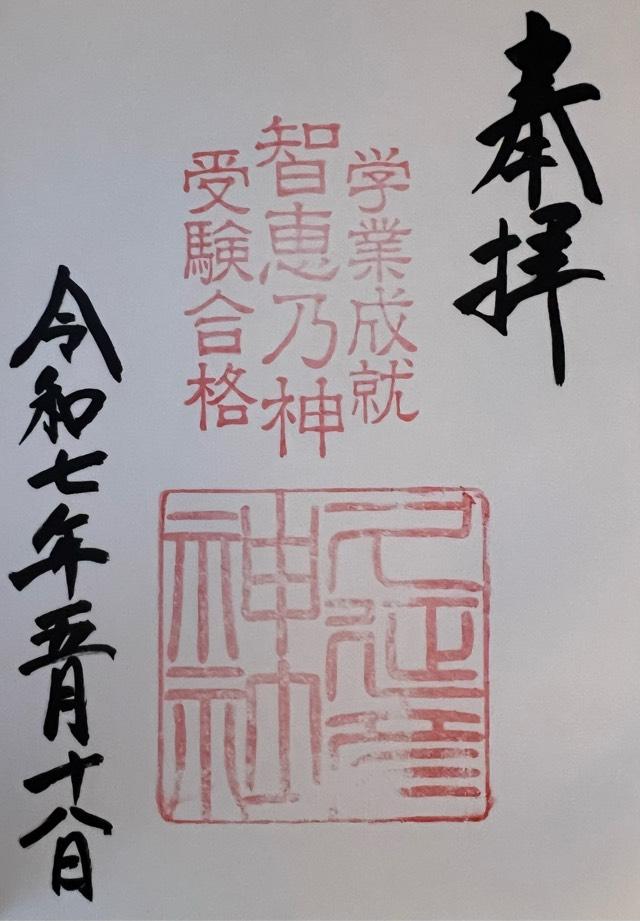 奉拝
学業成就
智恵乃神
受験合格
久延彦
神社
令和七年五月十八日